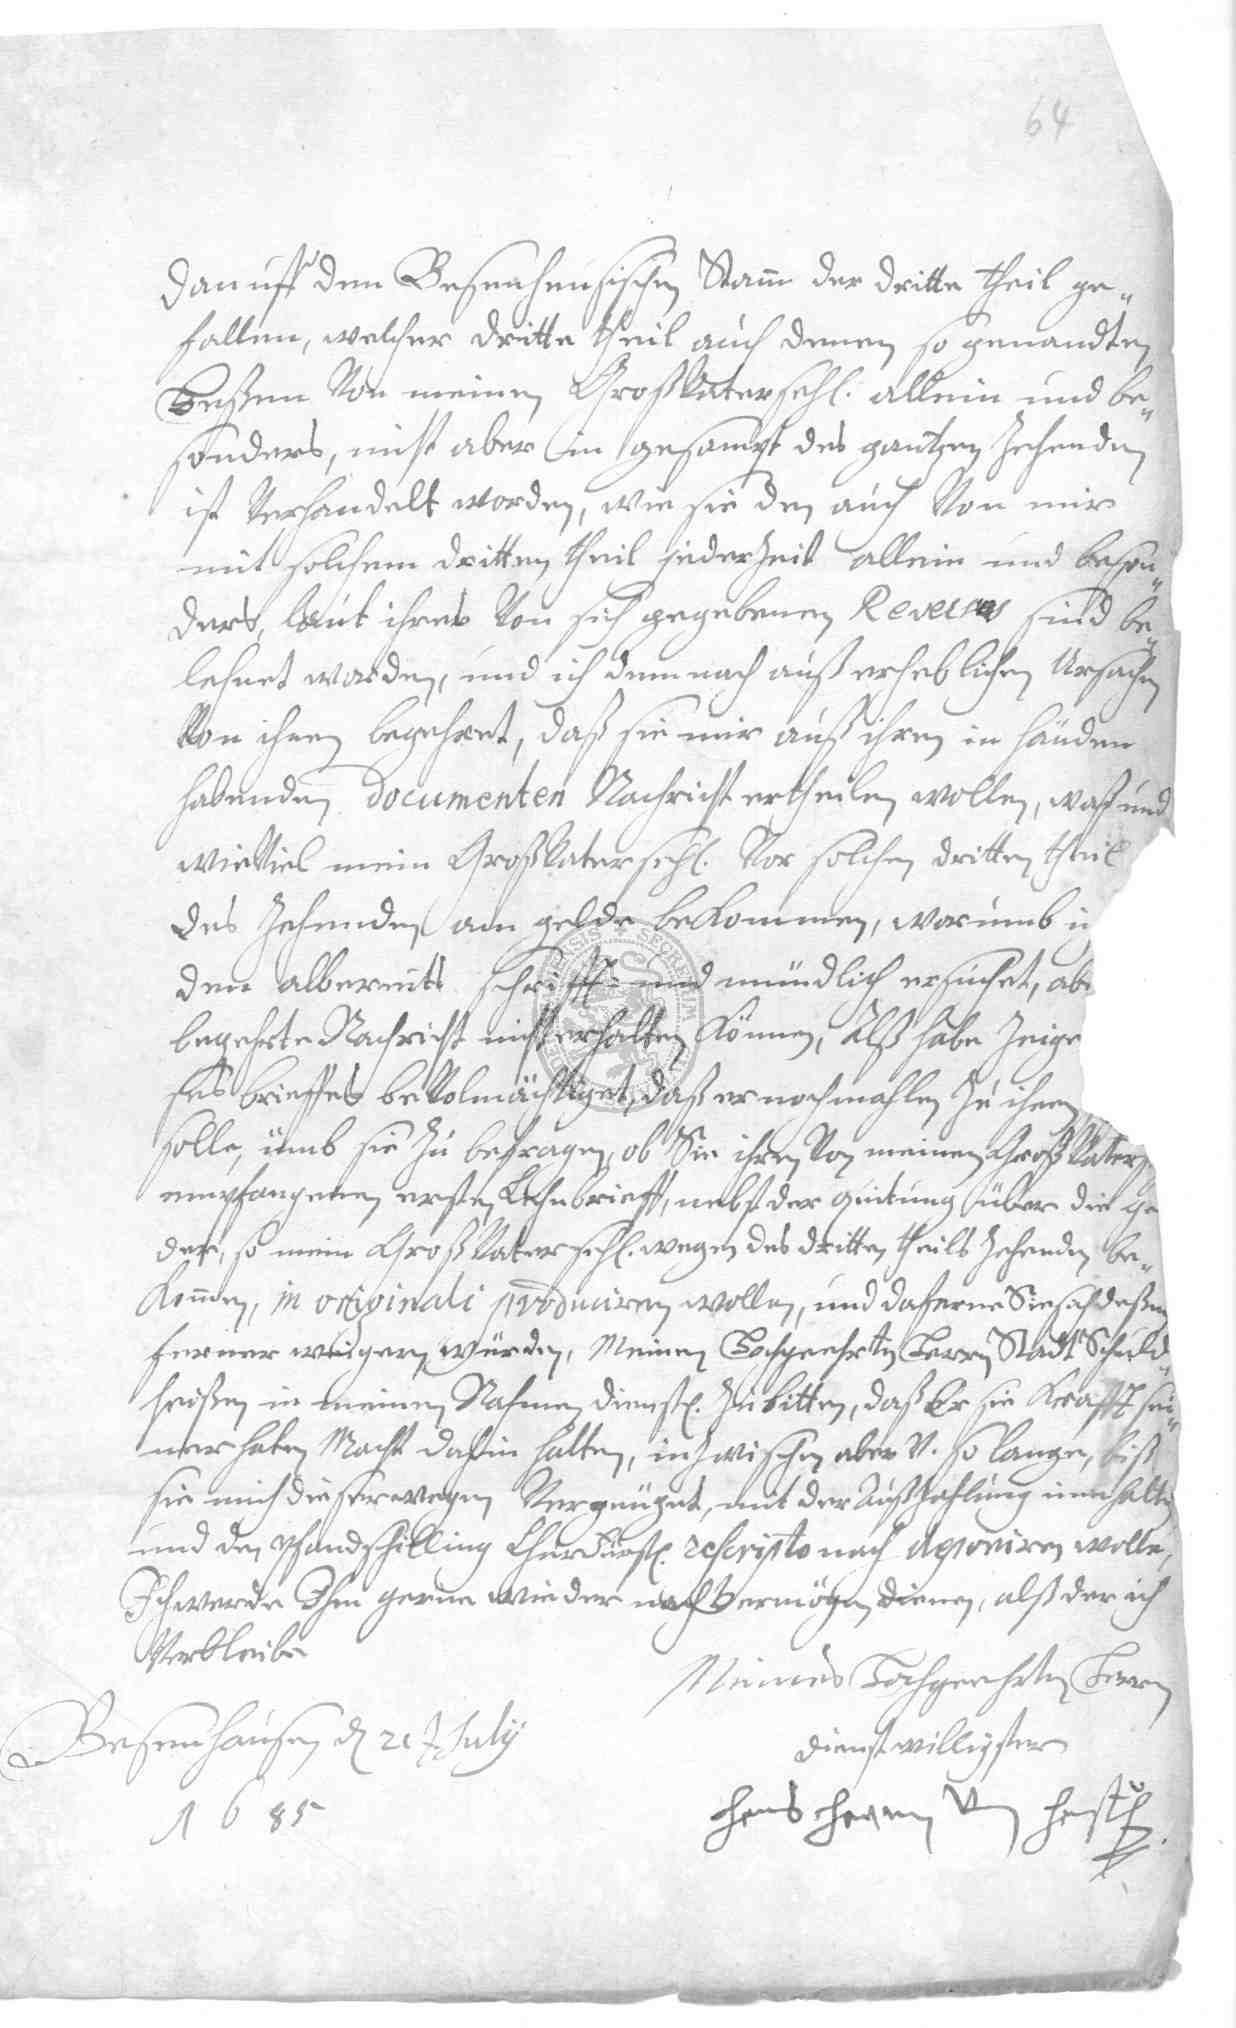 64
dan uff den Besenhausischen Stam der dritte theil ge-
fallen, welcher dritte theil auch denen so genandten
Von meinen GroßVater sehl. allein und be-
sonders, nicht aber in gesampt des gantzen Zehenden
ist Verhandelt worden, wie sie den auch Von mir
mit solchem dritten theil jederzeit allein und beson-
ders, laut ihres Von sich gegebenen Reverses sind be-
lehnet worden, und ich demnach auß erheblichen Ursachen
Von ihnen begehret, daß sie mir auß ihren in händen
habenden documenten Nachricht ertheilen wollen, waß und
wieViel mein GroßVater sehl. Vor solchen dritten theil
des Zehenden an gelde bekommen, warumb i
den albereits schrifft- und mündlich ersuchet, abe
begehrte Nachricht nicht erhalten können, Alß habe Zeige
ses brieffes beVolmächtiget, daß er nochmahlen zu ihnen
solle, ümb sie zu befragen, ob Sie ihren Von meinen GroßVater s
empfangenen ersten Lehnbrieff, nebst der quitung über die ge
der, so mein GroßVater sehl. wegen des dritten theils Zehenden be-
kommen, in originali produciren wollen, und daferne Sie sich deßen
ferner weigern würden, Meinen Hochgeehrten Herrn Stadt Schuld-
heißen in meinen Nahmen dienstl. zu bitten, daß Er sie Krafft sei-
ner haben Macht dahin halten, inzwischen aber V. so lange, biß
sie mich dieserwegen Vergnüget, mit der Außzahlung innehalten
und den pfandschilling ChurFürstl. rescripto nach deponiren wolle,
Ich werde Ihm gerne wieder nach Vermögen dienen, alß der ich
Verbleibe
Meines Hochgeehrten Herrn
Besenhausen d 21 July
dienstwilliger
1685